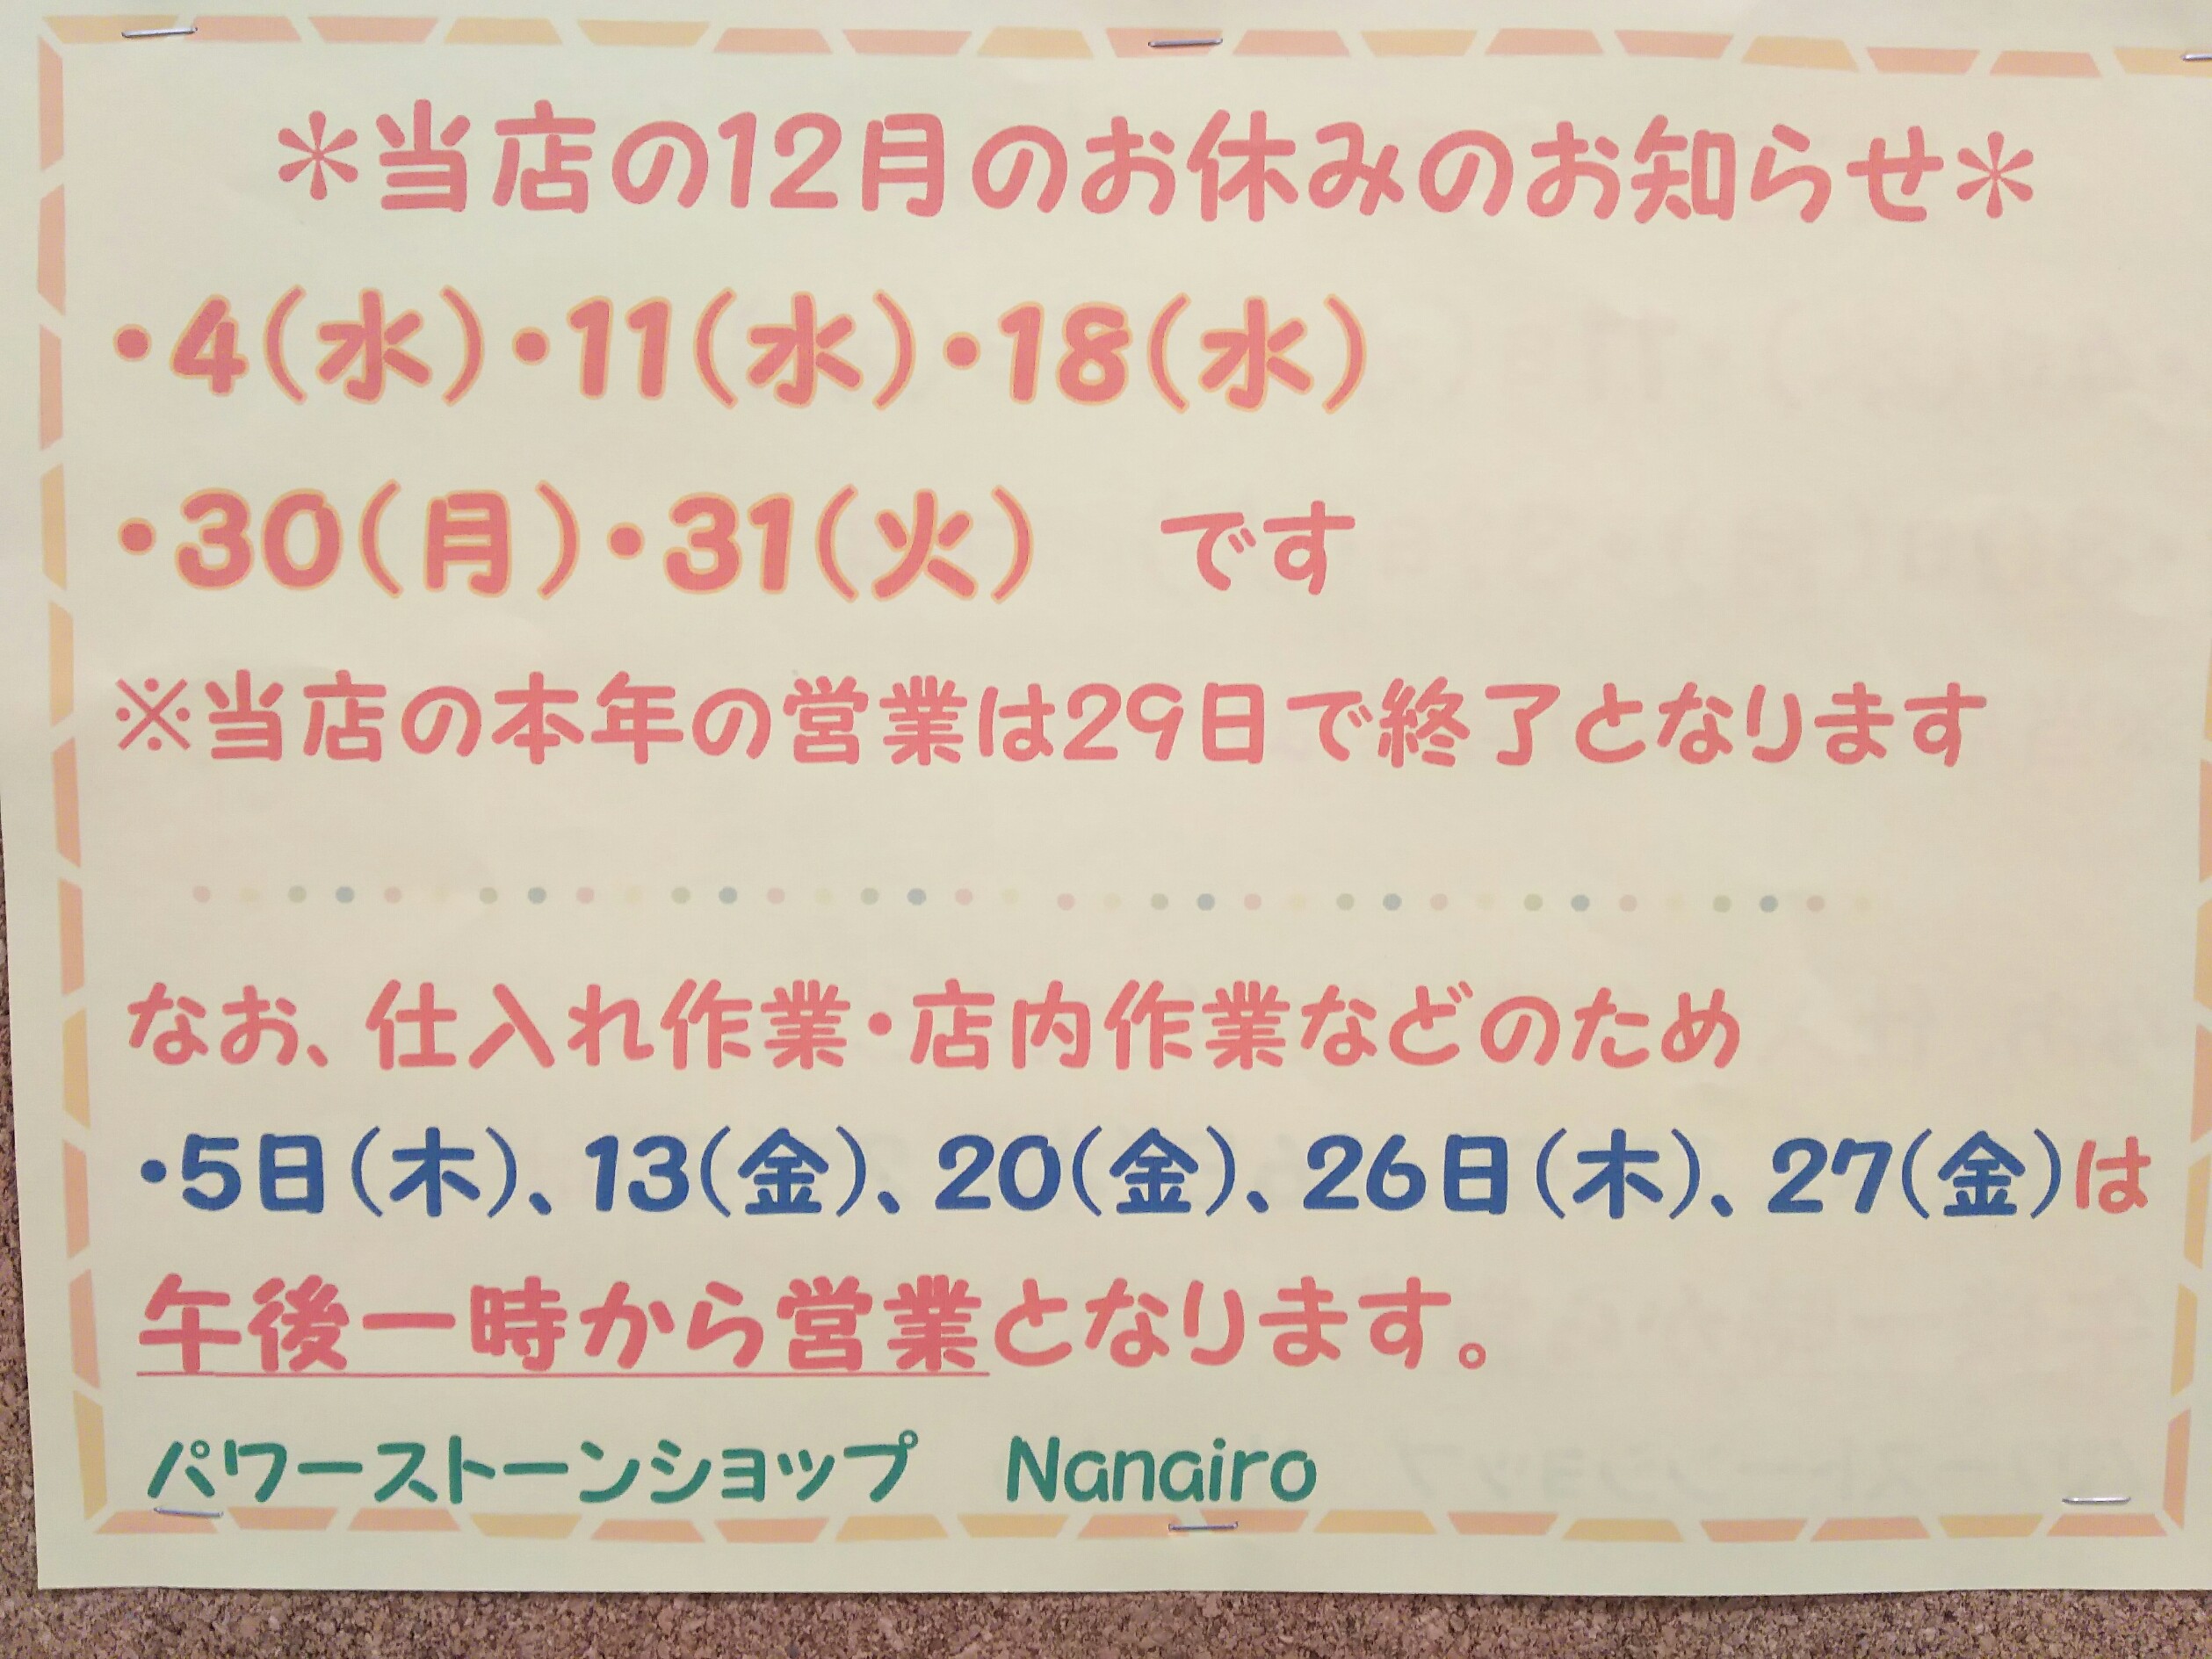 ＊当店の12月のお休みのお知らせ＊
・4(水)・11(水)・18(水)
・30(月)・31(火)　です
※当店の本年の営業は29日で終了となります
なお、仕入れ作業・店内作業などのため
・5日(木)、13(金)、20(金)、26日(木)、27(金)は
午後一時から営業となります。
パワーストーンショップ　Nanairo